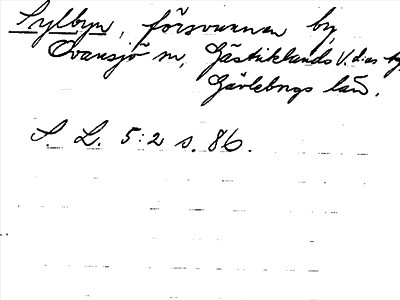 Sylbyn, försvunnen by,
Ovansjö sn, Gästriklands v. d:as tg,
Gävleborgs län.
S. L. 5:2 s. 86.